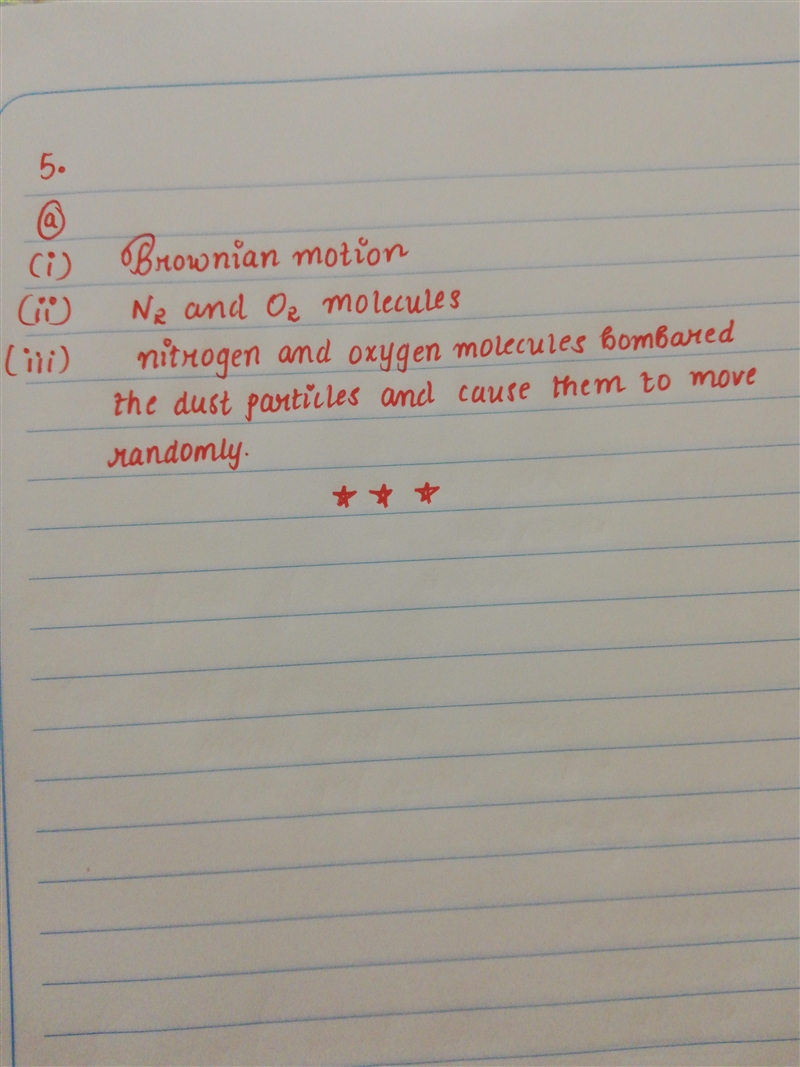 5.
(a)
(i) Brownian motion
(ii) N₂ and O₂ molecules
(iii) nitrogen and oxygen molecules bombared
the dust particles and cause them to move
randomly.
☆ ☆ ☆